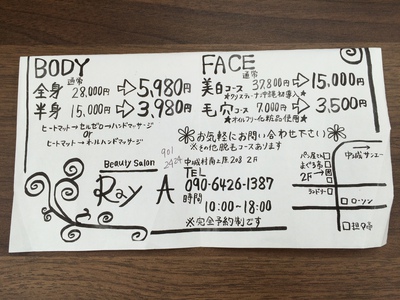 BODY
通常
全身 28,000円⇨5,980円
半身 15,000円⇨3,980円
ヒートマット→セルゼロ→ハンドマッサージ
or
ヒートマット→オイルハンドマッサージ
FACE
通常
美白コース 37,800円⇨15,000円
毛穴コース 7,000円⇨3,500円
★オイルフリー化粧品使用★
お気軽にお問い合わせ下さい
※その他脱毛コースあります
Beauty Salon
Ray A
901
2424
中城村南上原208 2F
TEL
090-6426-1387
時間
10:00~18:00
※完全予約制です
パン屋さん
まぐろ亭
2F
ランドリー
中城サンエー
ローソン